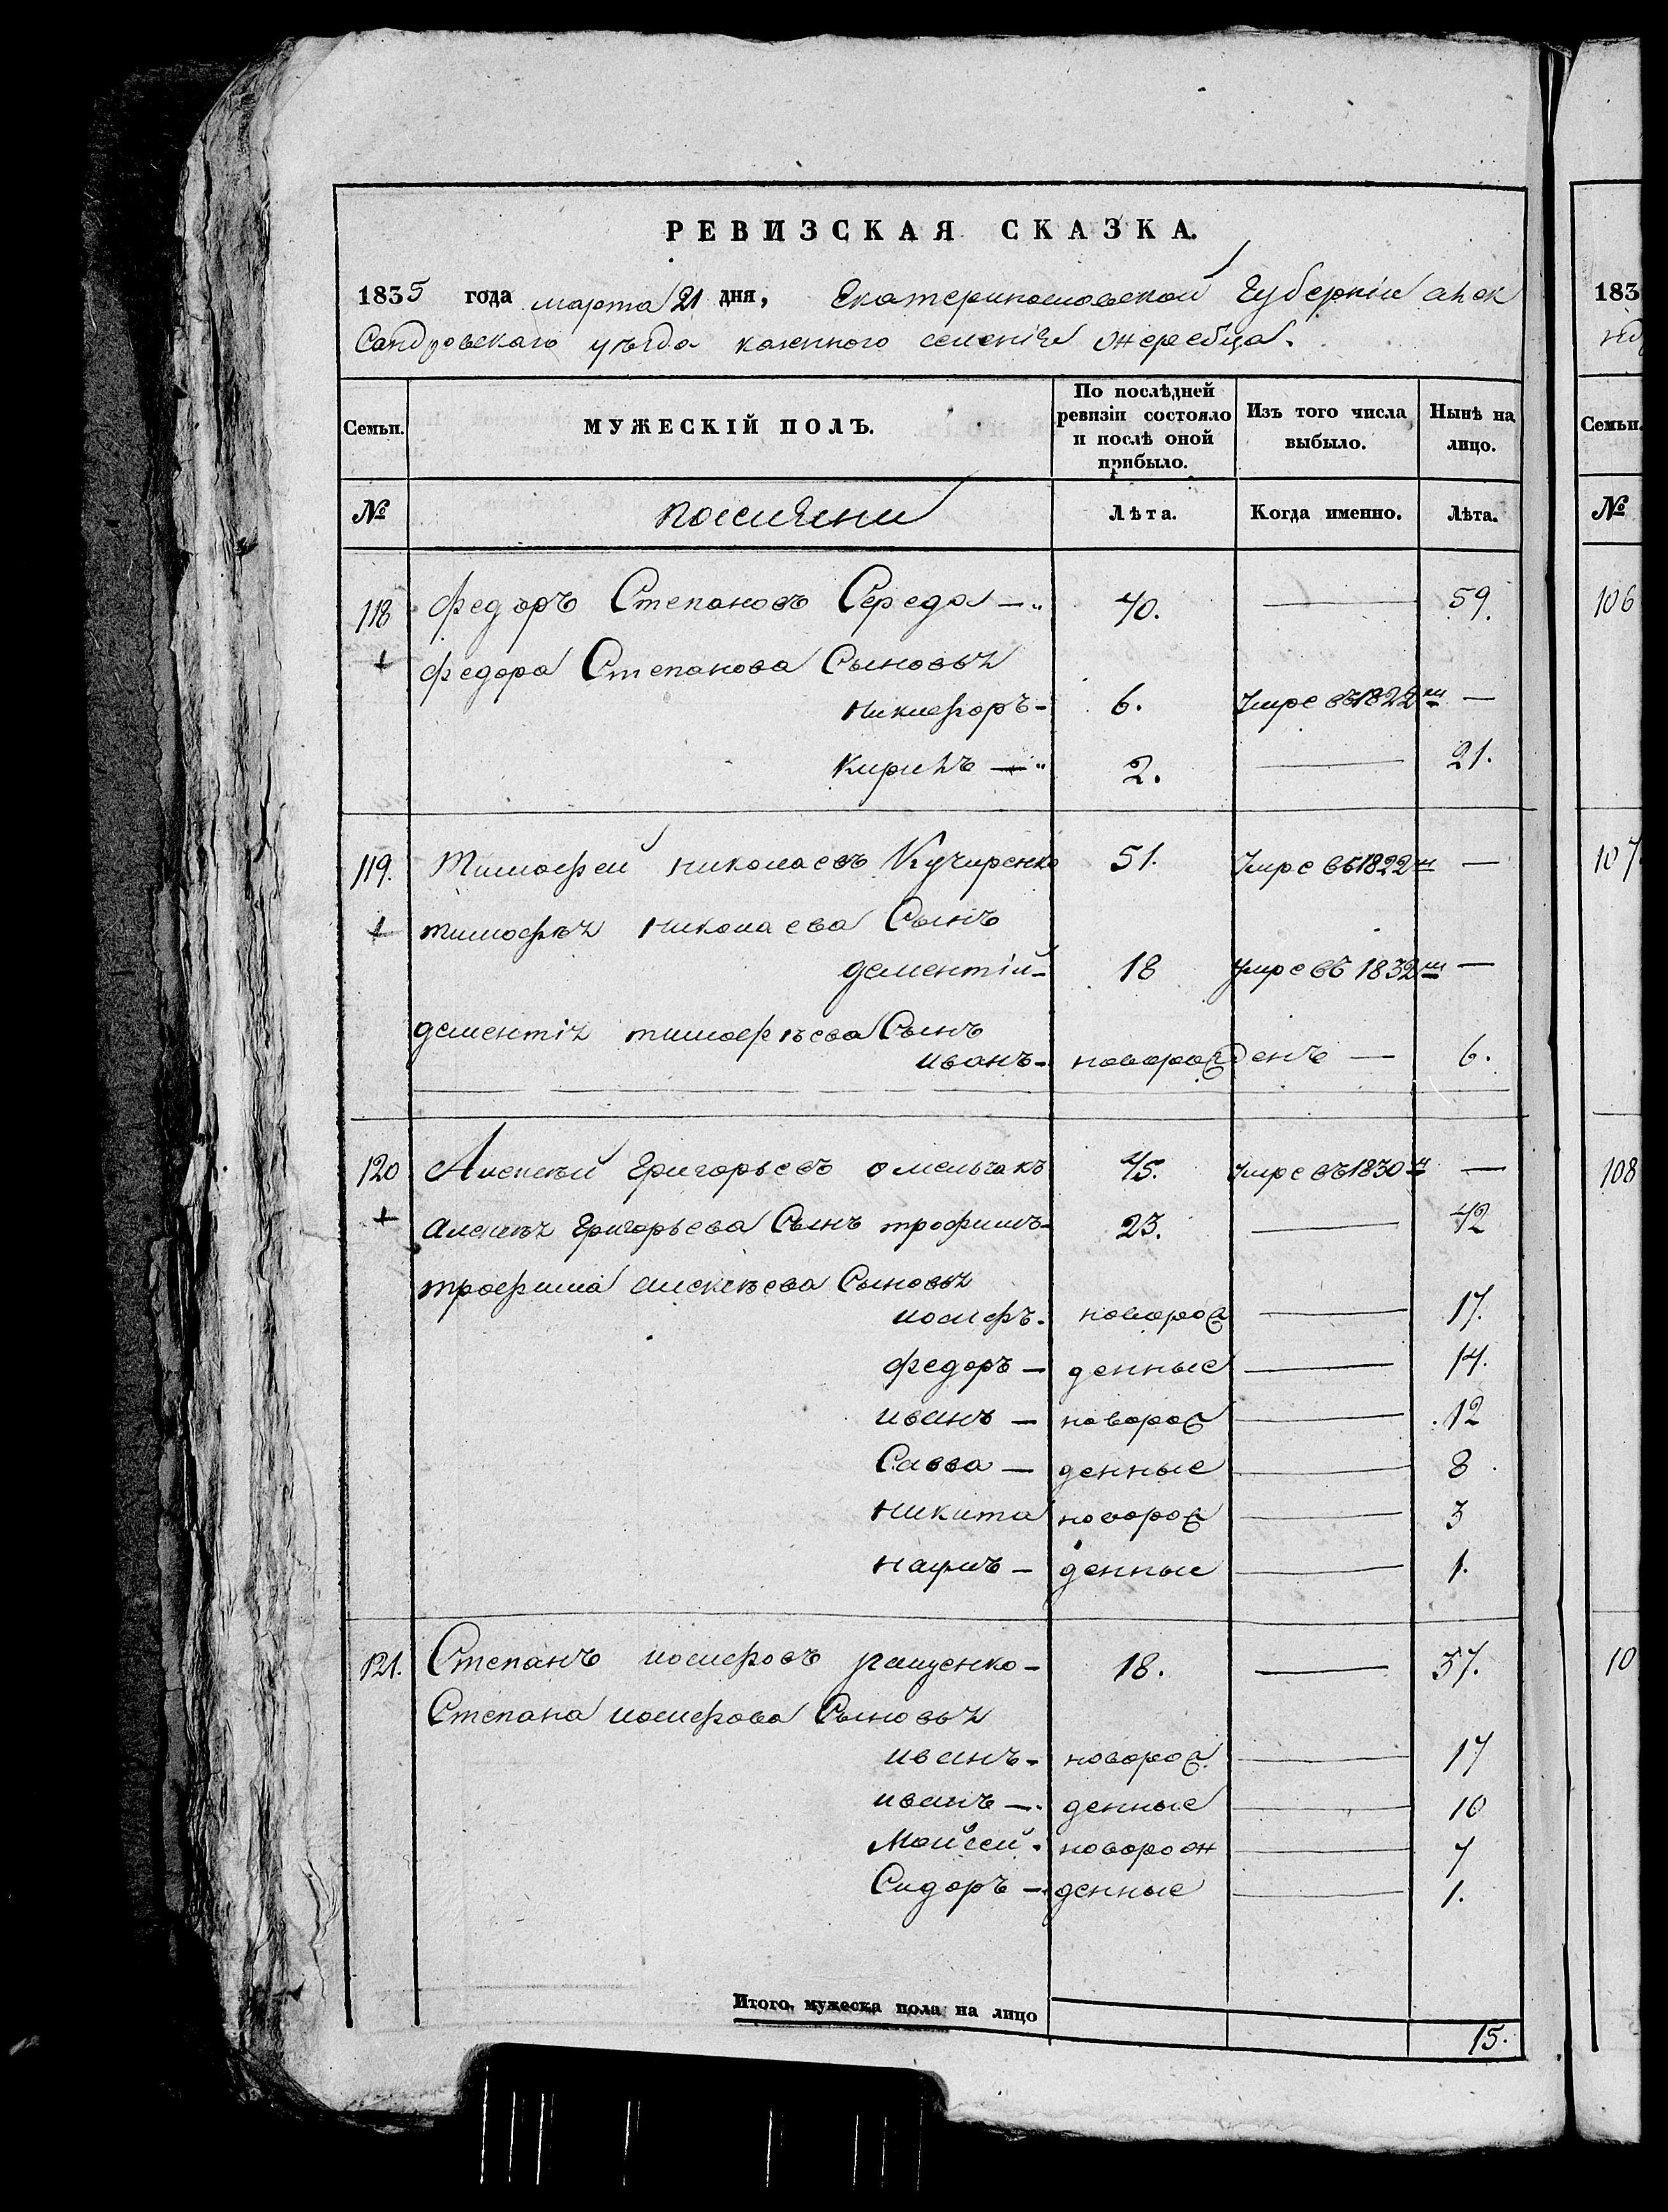 РЕВИЗСКАЯ СКАЗКА.
1835 года марта 21 дня, Екатеринославской Губерніи алек
сандровскаго уѣзда казенного селенія жеребца.
Семьи. МУЖЕСКІЙ ПОЛЪ. По послѣдней ревизіи состояло и послѣ оной прибыло. Изъ того числа выбыло. Нынѣ на лицо.
№ поселяни Лѣта. Когда именно. Лѣта.
118 Федоръ Степановъ Середа 40. — 59.
Федора Степанова Сыновья
никифоръ 6. Умре въ 1822 м —
Кирилъ 2. — 21.
119. Тимофей николаевъ Кучиренко 51. Умре въ 1822 м —
тимофея николаева Сынъ
дементій 18 умре въ 1832 м —
дементія тимофѣева Сынъ
иванъ новорожденъ — 6.
120 Алексѣй Григорьевъ омельчакъ 45. Умре въ 1830 м —
алексѣя Григорьева Сынъ трофимъ 23. — 42
трофима алексѣева Сыновья
иосифъ новорож — 17.
федоръ денные — 14.
иванъ новорож — 12
Савва денные — 8
Никита новорож — 3
наумъ денные — 1.
121. Степанъ иосифовъ 18. — 37.
Степана иосифова Сыновья
иванъ новорож — 17
иванъ денные — 10
Мойсей новорож — 7
Сидоръ денные — 1.
Итого, мужеска пола на лицо 15.
183
Семьи.
№
106
107
108
10